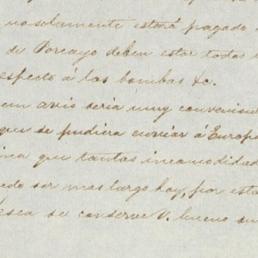 solamente estará pagado
de Porcayo deben estar todas l
respecto á las bombas &c.
avio seria muy convenien
que se pudiera enviar á Europa
que tantas incomodidad
ser mas largo hoy, por esta
se conserve V. bueno su